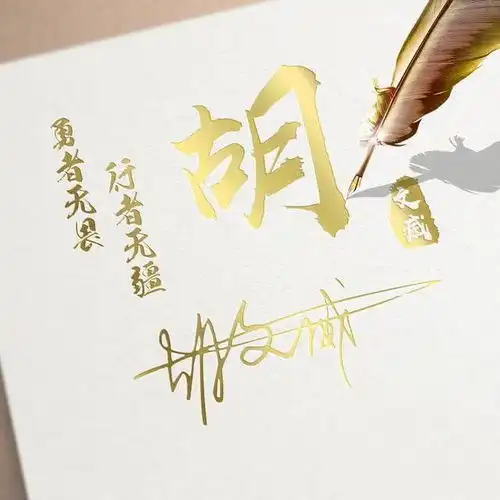 胡
文
勇者无畏
行者无疆
胡文